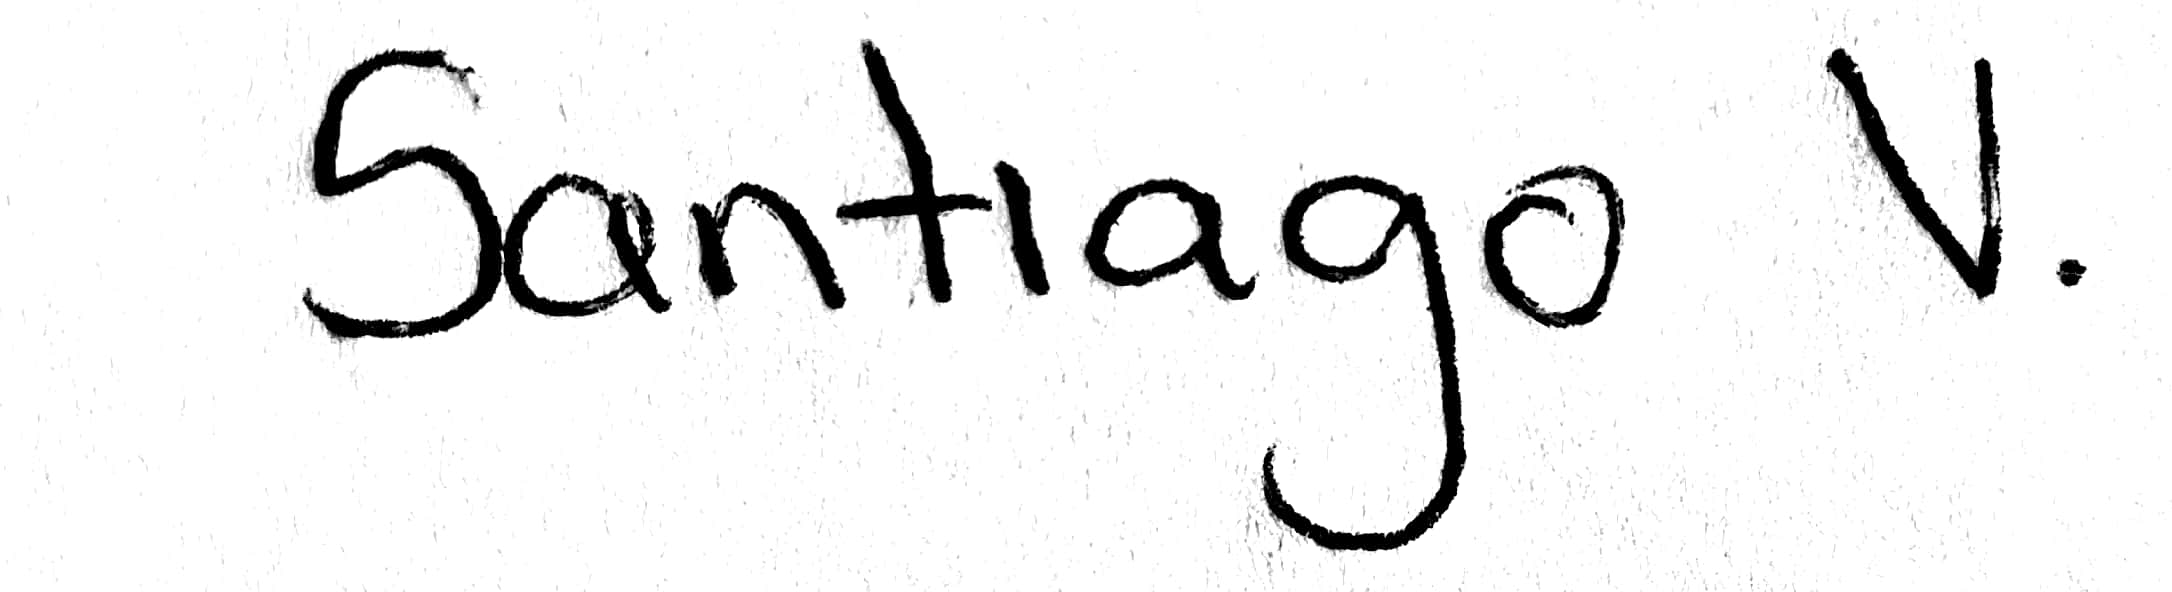 Santiago V.